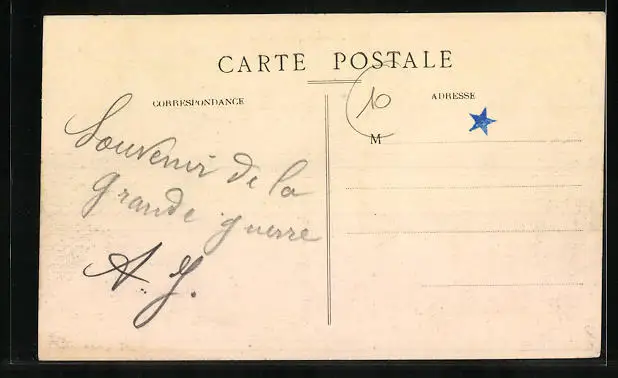 CARTE POSTALE
CORRESPONDANCE
ADRESSE
10
M
Souvenir de la
grande guerre
A. Y.